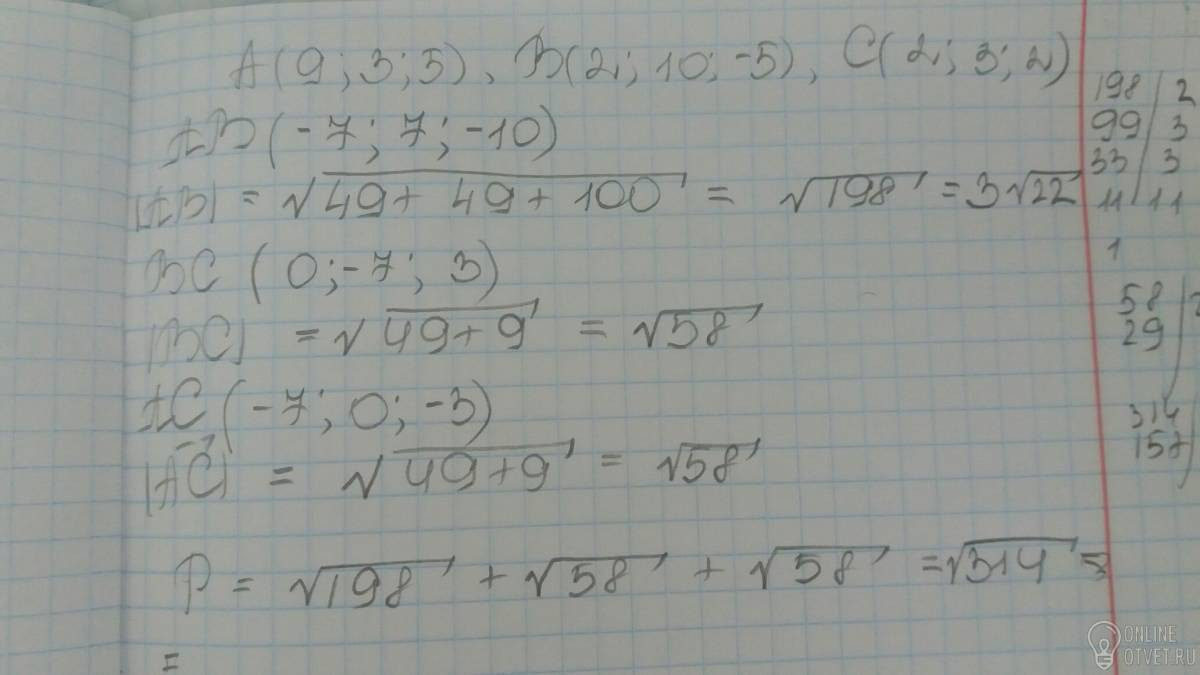 A(9; 3; 5), B(2; 10; -5), C(2; 3; 2)
AB(-7; 7; -10)
|AB| = √49+ 49+ 100 = √198 = 3√22
BC (0; -7; 3)
|BC| = √49+9 = √58
AC (-7; 0; -3)
|AC| = √49+9 = √58
P = √198 + √58 + √58 = √314 =
=
198 2
99 3
33 3
11 11
1
58 2
29
314
157
ONLINE
OTVET.RU